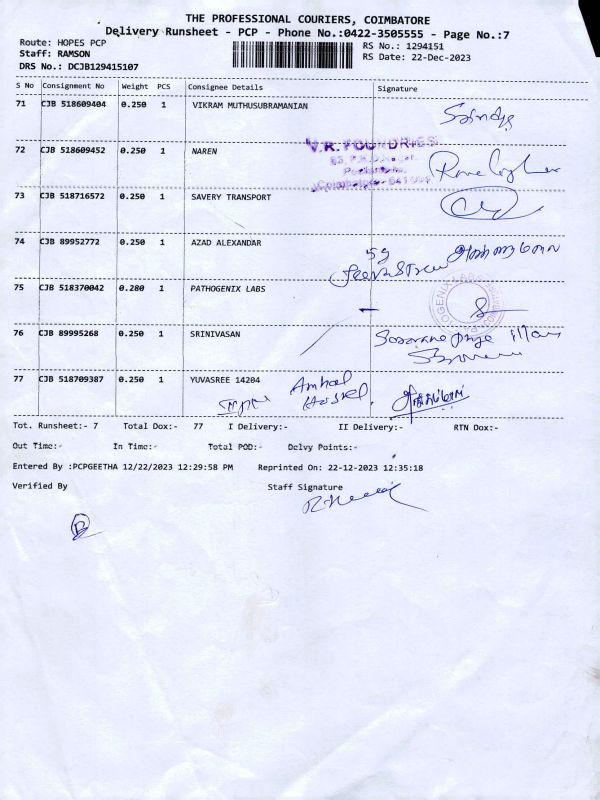 THE PROFESSIONAL COURIERS, COIMBATORE
Delivery Runsheet - PCP - Phone No.:0422-3505555 - Page No.:7
Route: HOPES PCP RS No.: 1294151
Staff: RAMSON RS Date: 22-Dec-2023
DRS No.: DCJB129415107
S No Consignment No Weight PCS Consignee Details Signature
71 CJB 518609404 0.250 1 VIKRAM MUTHUSUBRAMANIAN
72 CJB 518609452 0.250 1 NAREN V.R. FOUNDRIES
73 CJB 518716572 0.250 1 SAVERY TRANSPORT
74 CJB 89952772 0.250 1 AZAD ALEXANDAR
75 CJB 518370042 0.280 1 PATHOGENIX LABS
76 CJB 89995268 0.250 1 SRINIVASAN
77 CJB 518709387 0.250 1 YUVASREE 14204
Tot. Runsheet:- 7 Total Dox:- 77 I Delivery:- II Delivery:- RTN Dox:-
Out Time:- In Time:- Total POD:- Delvy Points:-
Entered By :PCPGEETHA 12/22/2023 12:29:58 PM Reprinted On: 22-12-2023 12:35:18
Verified By Staff Signature